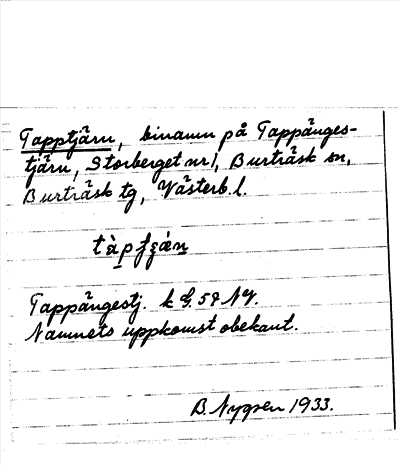 Tapptjärn, binamn på Tappänges-
tjärn, Storberget nr 1, Burträsk sn,
Burträsk tg, Västerb. l.
Tappängestj. k G. 59 NV.
Namnets uppkomst obekant.
B. Nygren 1933.